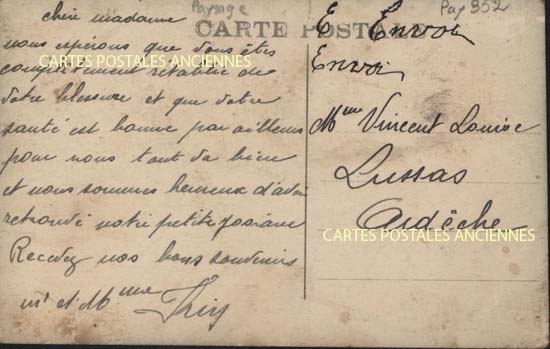 Paysage
Pay 852
CARTE POSTALE
chère madame
nous espérons que vous êtes
complètement rétablie de
votre blessure et que votre
santé est bonne par ailleurs
pour nous tout va bien
et nous sommes heureux d'avoir
retrouvé notre petite Josiane
Recevez nos bons souvenirs
mr et Mme
E Envoi
Envoi
Mme Vincent Louise
Lussas
Ardèche
CARTES POSTALES ANCIENNES
CARTES POSTALES ANCIENNES
CARTES POSTALES ANCIENNES